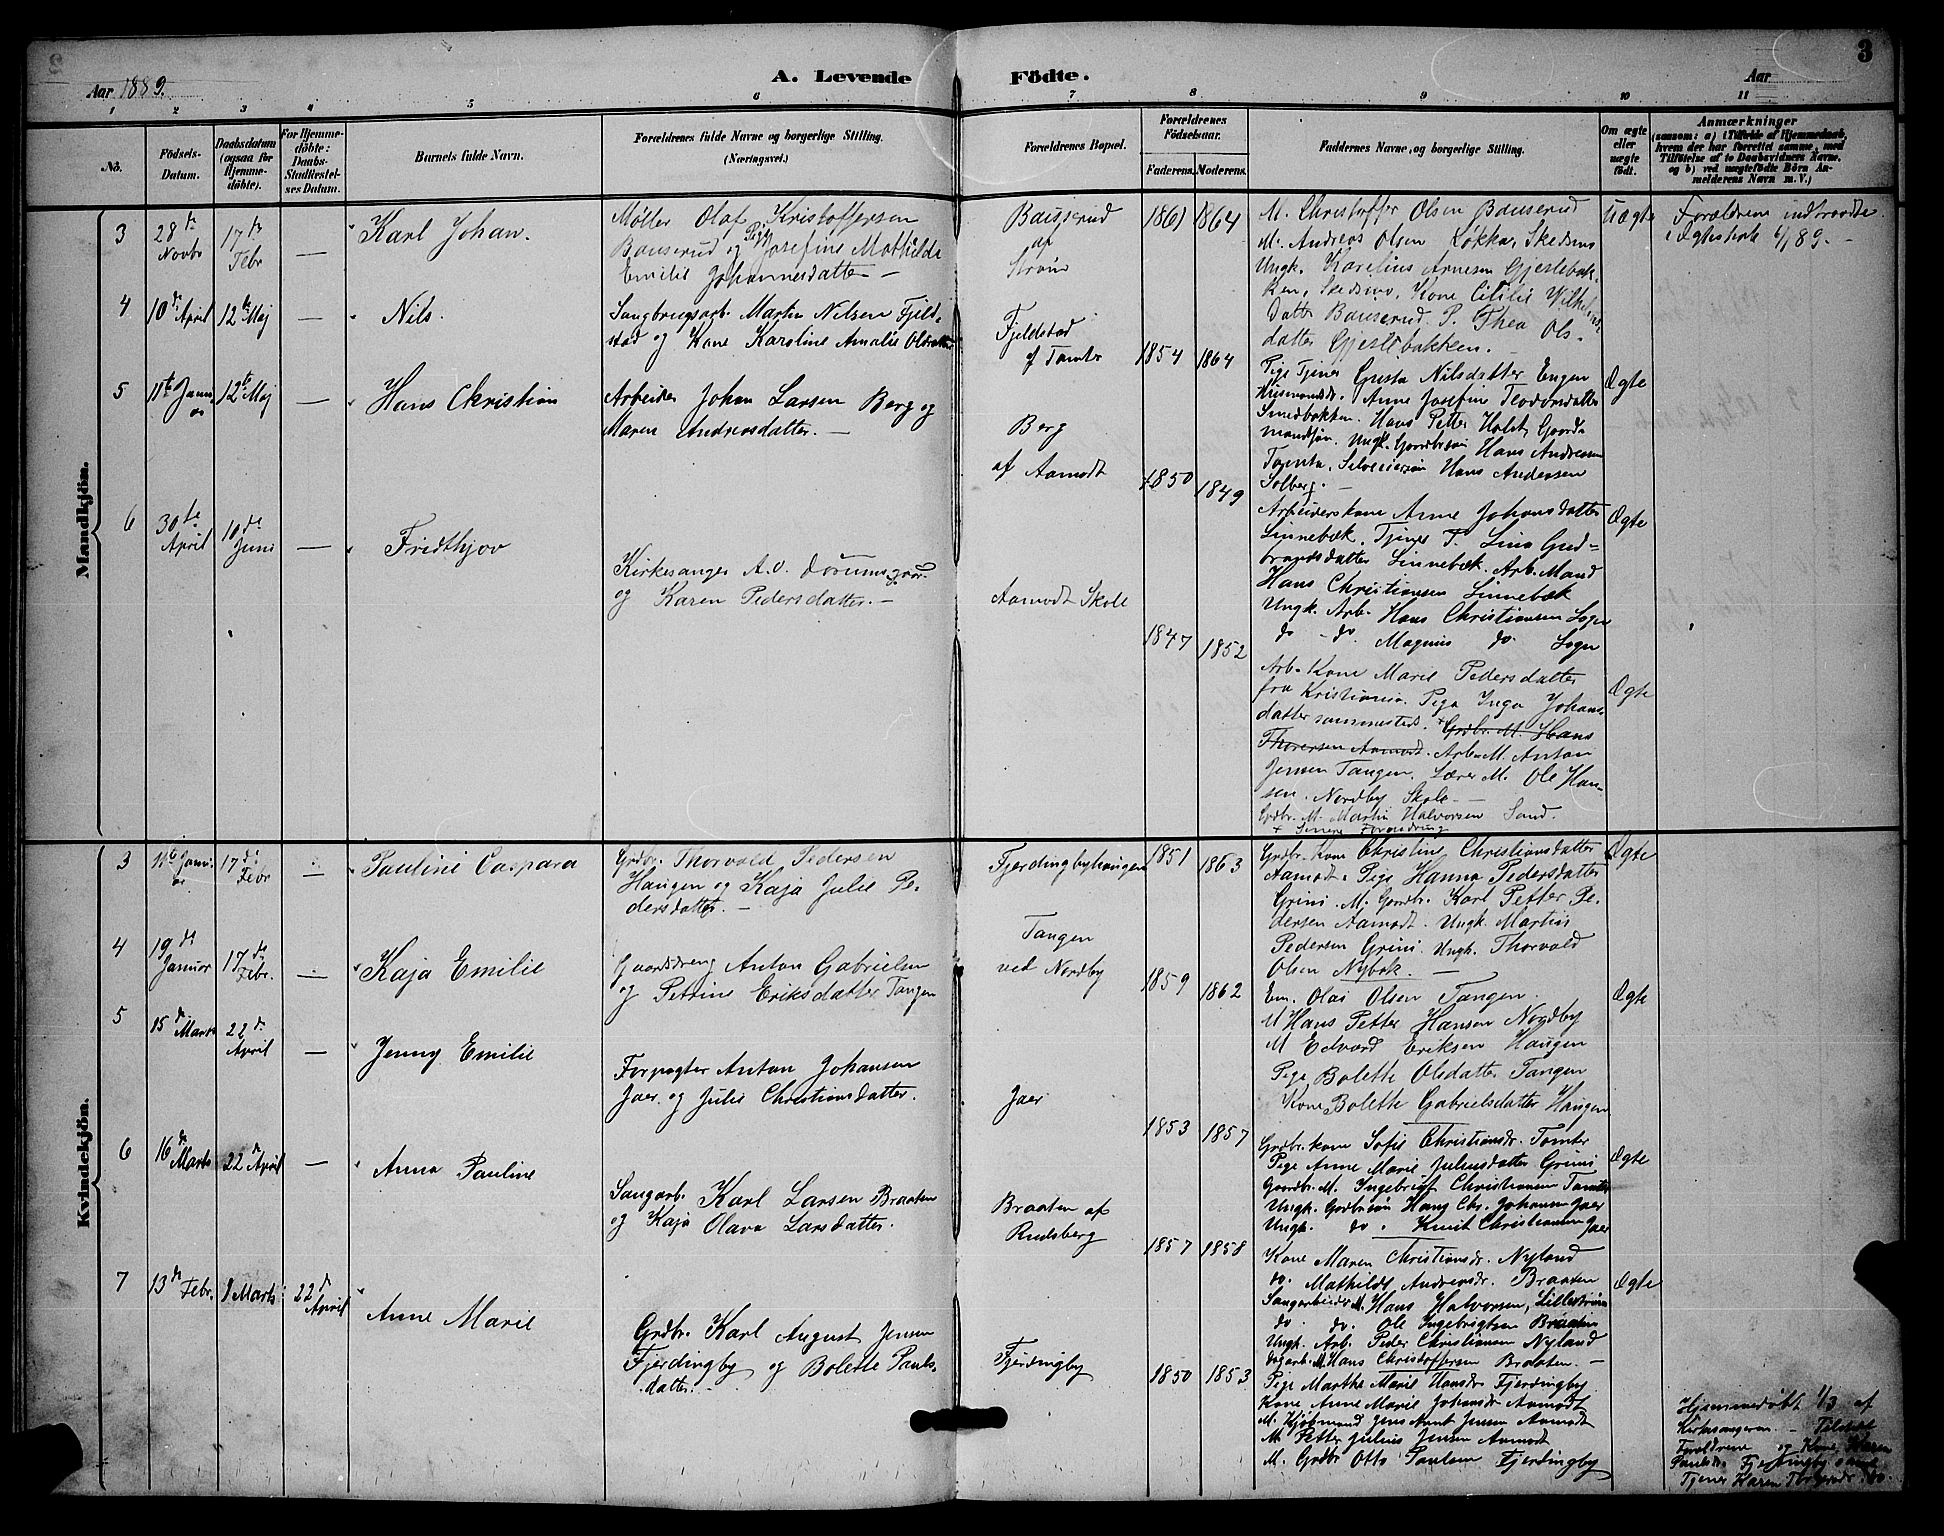 Aar 1889.
A. Levende Födte.
Aar
3
1 2 3 4 5 6 7 8 9 10 11
No.
Födsels-Datum.
Daabsdatum (ogsaa for Hjemme-döbte).
For Hjemme-döbte: Daabs-Stadfæstel-ses Datum.
Barnets fulde Navn.
Forældrenes fulde Navne og borgerlige Stilling. (Næringsvei.)
Forældrenes Bopæl.
Forældrenes Födselsaar.
Faderens. Moderens.
Faddernes Navne, og borgerlige Stilling.
Om ægte eller uægte födt.
Anmærkninger
(saasom: a) i Tilfælde af Hjemmedaab, hvem der har forrettet samme, med Tilföielse af to Daabsvidners Navne, og b) ved uægtefödte Börn Anmelderens Navn m. V.)
Mandkjön.
3
28de Novbr
17de Febr
—
Karl Johan.
Møller Olaf Kristoffersen
Bauserud og Pige Josefine Mathilde
Emilie Johannesdatter —
Bauserud
af
Strøm
1861 1864
M. Christoffer Olsen Bauserud
M. Andreas Olsen Løkka, Skedsmo
Ungk. Karelius Arnesen Gjestebak-
ken, Skedsmo. Kone Cicilie Wilhelms-
datter Bauserud. P. Thea Ols-
datter Gjestebakken. —
Uægte
Forældrene indtraadte
i Ægteskab 6/1 89. —
4
10de April
12te Maj
—
Nils.
Saugbrugsarb. Martin Nilsen Fjeld-
stad og Kone Karoline Amalie Olsdatter
Fjeldstad
af Tomter
1854 1864
Pige Tjener Gusta Nilsdatter Engen
Husmandsdr. Anne Josefine Teodorsdatter
Smedbakken. Hans Petter Holst, Gaard-
mandsøn. Ungk. Gaardbrsøn Hans Andresen
Togenta, Selveiersøn Hans Andersen
Solberg. —
Ægte
5
11te Janu-
ar
12te Maj
—
Hans Christian
Arbeider Johan Larsen Berg og
Maren Andreasdatter. —
Berg
af Aamodt
1850 1849
Arbeiderskone Anne Johansdatter
Linnebæk. Tjener P. Lina Gud-
brandsdatter Linnebæk. Arb. Mand
Hans Christiansen Linnebæk
Ungk. Arb. Hans Christiansen Sogn
do - do. Magnus do. Sogn
Ægte
6
30te April
10de Juni
—
Fridthjov
Kirkesanger A. O. Dørumsgaard
og Karen Pedersdatter. —
Aamodt Skole
1847 1852
Arb. Kone Marie Pedersdatter
fra Kristiania. Pige Inga Johans-
datter sammesteds. Grdbr. M. Hans
Thoresen Aamodt. Arb. M. Anton
Jensen Tangen. Lærer M. Ole Han-
sen. Nordby Skole —
Grdbr. M. Martin Halvorsen Sand.
+ Senere Forandring
Ægte
Kvindekjön.
3
11te Janu-
ar
17de Febr
—
Pauline Caspara
Grdbr. Thorvald Pedersen
Haugen og Kaja Julie Pe-
dersdatter. —
Fjerdingbyhaugen
1851 1863
Grdbr. Kone Christine Christiansdatter
Aamodt. Pige Hanna Pedersdatter
Grini. M. Gaardbr. Karl Petter Pe-
dersen Aamodt. Ungk. Martin
Pedersen Grini. Ungk. Thorvald
Olsen Nybak. —
Ægte
4
19de Januar
17de Febr.
—
Kaja Emilie
Gaardsdreng Anton Gabrielsen
og Petrine Eriksdatter Tangen
Tangen
ved Nordby
1859 1862
Em. Olai Olsen Tangen.
M Hans Petter Hansen Nordby
M Edvard Eriksen Haugen
Pige Bolette Olsdatter Tangen
Kone Bolette Gabrielsdatter Haugen
Ægte
5
15de Marts
22de April
—
Jenny Emilie
Forpagter Anton Johansen
Jaer. og Julie Christiansdatter.
Jaer
1853 1857
Grdbr. kone Sofie Christiansdr. Tomter
Pige Anne Marie Juliusdatter Grini
Gaardbr. M. Ingebrigt Christiansen Tomter
Ungk. Grdbrsøn Hans Chr. Johansen Jaer
Ungk. do. Knut Christiansen Jaer
Ægte
6
16de Marts
22de April
—
Anna Pauline
Saugarb. Karl Larsen Braaten
og Kaja Olava Larsdatter.
Braaten af
Rudsberg
1857 1858
Kone Maren Christiansdr. Nyland
do. Mathilde Andreasdr. Braaten
Saugarbeider M. Hans Halvorsen, Lillestrøm
do. do. Ole Ingebrigtsen Braaten
Ungk. Arb. Peder Christiansen Nyland
Hans Christoffersen Braaten. —
Ægte
7
13de Febr.
1 Marts
22de April
Anne Marie
Grdbr. Karl August Jensen
Fjerdingby og Bolette Pauls-
datter. —
Fjerdingby
1850 1853
Pige Marthe Marie Hansdr Fjerdingby
Kone Anne Marie Johansdr Aamodt
M. Kjøbmand Jens Arnt Jensen Aamodt
M. Petter Julius Jensen Aamodt
M. Grdbr Otto Paulsen Fjerdingby
Hjemmedøbt 1/3 af
Kirkesangeren — Tilstede
Forældrene og Kone Karen
Paulsdr. Fjerdingby samt
Tjener Karen do.